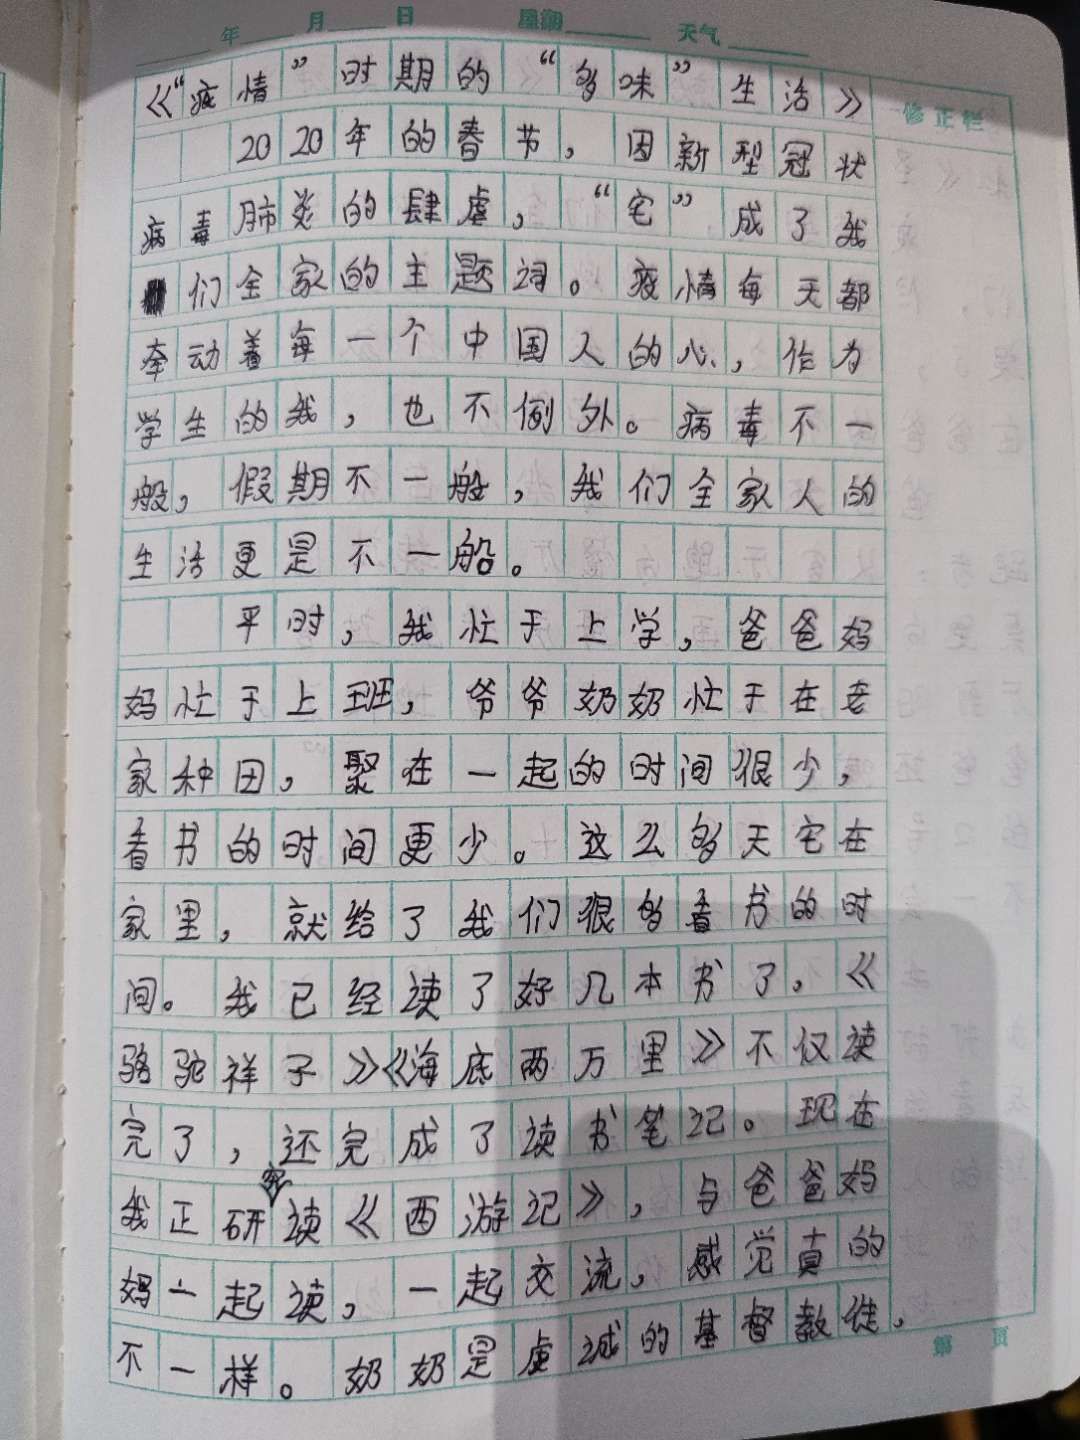 年 月 日 星期 天气
《“疫情”时期的“多味”生活》
修正栏
2020年的春节，因新型冠状
病毒肺炎的肆虐，“宅”成了我
们全家的主题词。疫情每天都
牵动着每一个中国人的心，作为
学生的我，也不例外。病毒不一
般，假期不一般，我们全家人的
生活更是不一船。
平时，我忙于上学，爸爸妈
妈忙于上班，爷爷奶奶忙于在老
家种田，聚在一起的时间很少，
看书的时间更少。这么多天宅在
家里，就给了我们很多看书的时
间。我已经读了好几本书了，《
骆驼祥子》《海底两万里》不仅读
完了，还完成了读书笔记。现在
我正研究读《西游记》，与爸爸妈
妈一起读，一起交流，感觉真的
不一样。奶奶是虔诚的基督教徒，
第 页